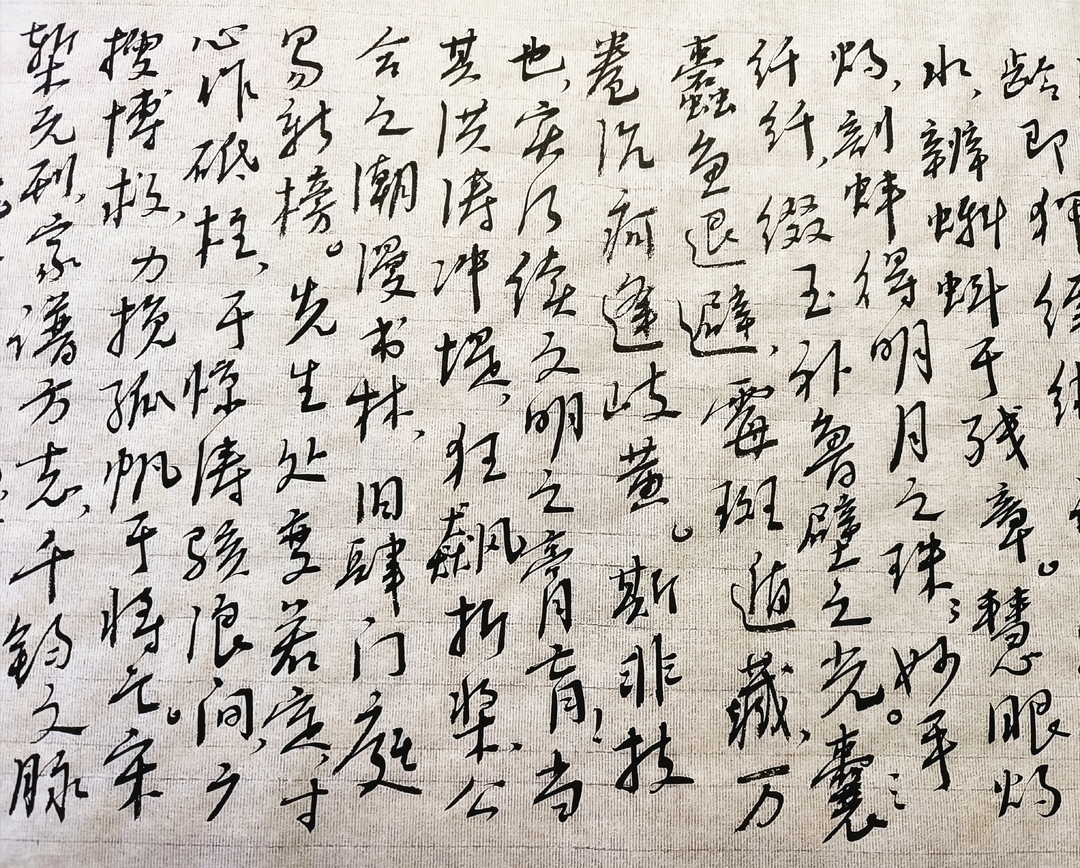 龄即
水，辨蝌蚪于残章。慧眼灼
灼，剖蚌得明月之珠；妙手
纤纤，缀玉补鲁壁之光。囊
蠹鱼退避，霉斑遁藏，万
卷沉疴逢岐黄。斯非技
也，实乃续文明之膏肓！当
其洪涛冲堤，狂飙折桨，公
合之潮漫书林，旧肆门庭
易新榜。先生处变若定，寸
心作砥柱，于惊涛骇浪间，广
搜博救，力挽孤帆于将亡。宋
椠元刊，家谱方志，千钧文脉